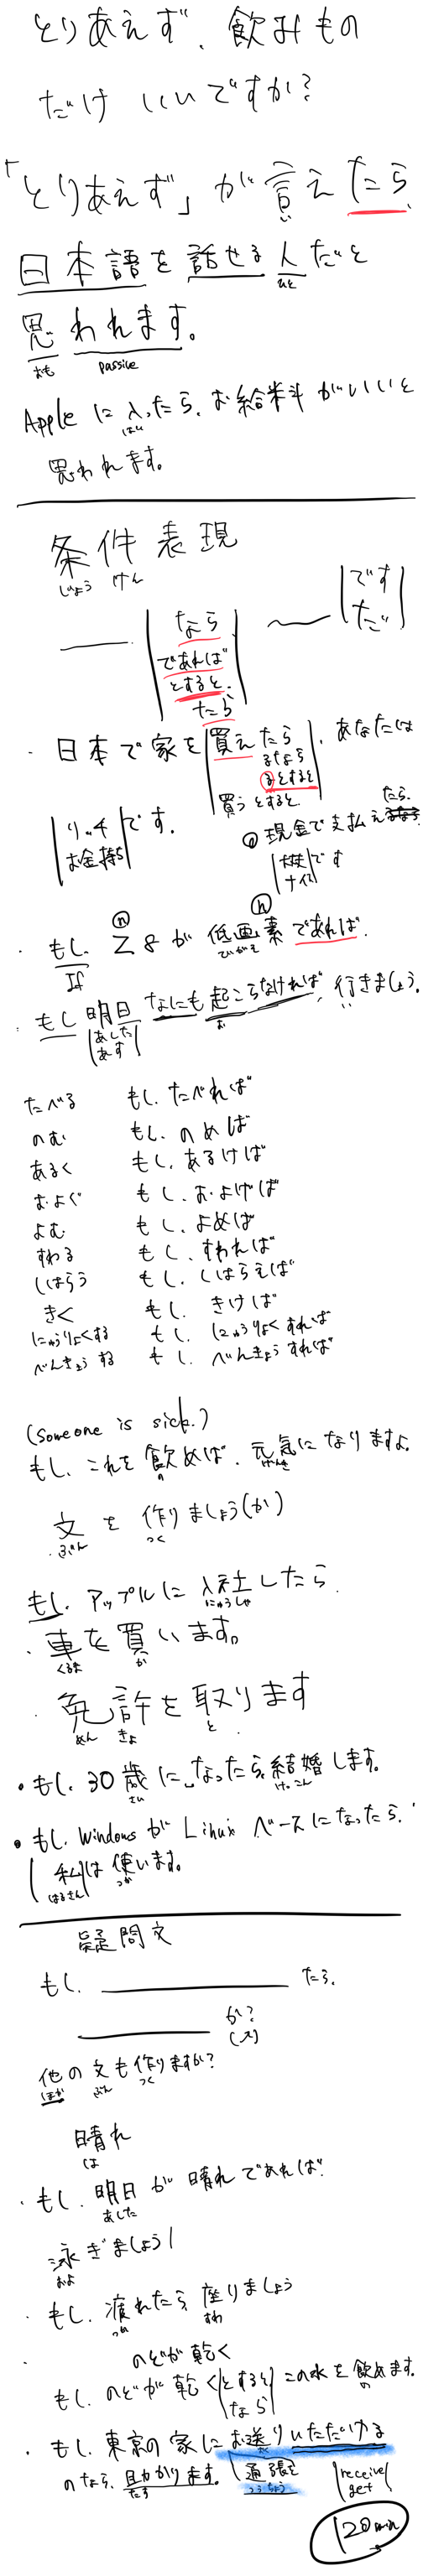 とりあえず、飲みもの
だけ いいですか?
「とりあえず」が言えたら、
い
日本語を話せる人だと
ひと
思われます。
おも passive
Appleに入ったら、お給料がいいと
はい
思われます。
条件表現
じょう けん
なら
であれば
とすると、
たら
です
だ
・日本で家を買えたら、あなたは
るなら
るとすると
買うとすると
リッチ
お金持ち
です。
現金で支払えたら
です
もし、Z8が低画素であれば、
ⓝ ⓝ
If
・もし明日なにも起こらなければ、行きましょう。
あした
あす
お い
たべる もし、たべれば
のむ もし、のめば
あるく もし、あるけば
およぐ もし、およげば
よむ もし、よめば
すわる もし、すわれば
しはらう もし、しはらえば
きく もし、きけば
にゅうりょくする もし、にゅうりょくすれば
べんきょうする もし、べんきょうすれば
(someone is sick.)
もし、これを飲めば、元気になりますよ。
の げんき
文を作りましょう(か)
ぶん つく
もし、アップルに入社したら、
にゅうしゃ
・車を買います。
くるま か
・免許を取ります
めん きょ と
・もし、30歳になったら、結婚します。
さい けっこん
・もし、WindowsがLinuxベースになったら、
私は使います。
はるさん つか
疑問文
もし、 たら、
か?
(↗)
他の文も作りますか?
ほか ぶん つく
晴れ
は
・もし、明日が晴れであれば、
あした
泳ぎましょう!
およ
・もし、疲れたら、座りましょう
つか すわ
・のどが乾く
もし、のどが乾くとすると この水を飲めます。
なら
の
・もし、東京の家にお送りいただける
のなら、助かります。
たす
通帳を
つうちょう
receive
get
120min